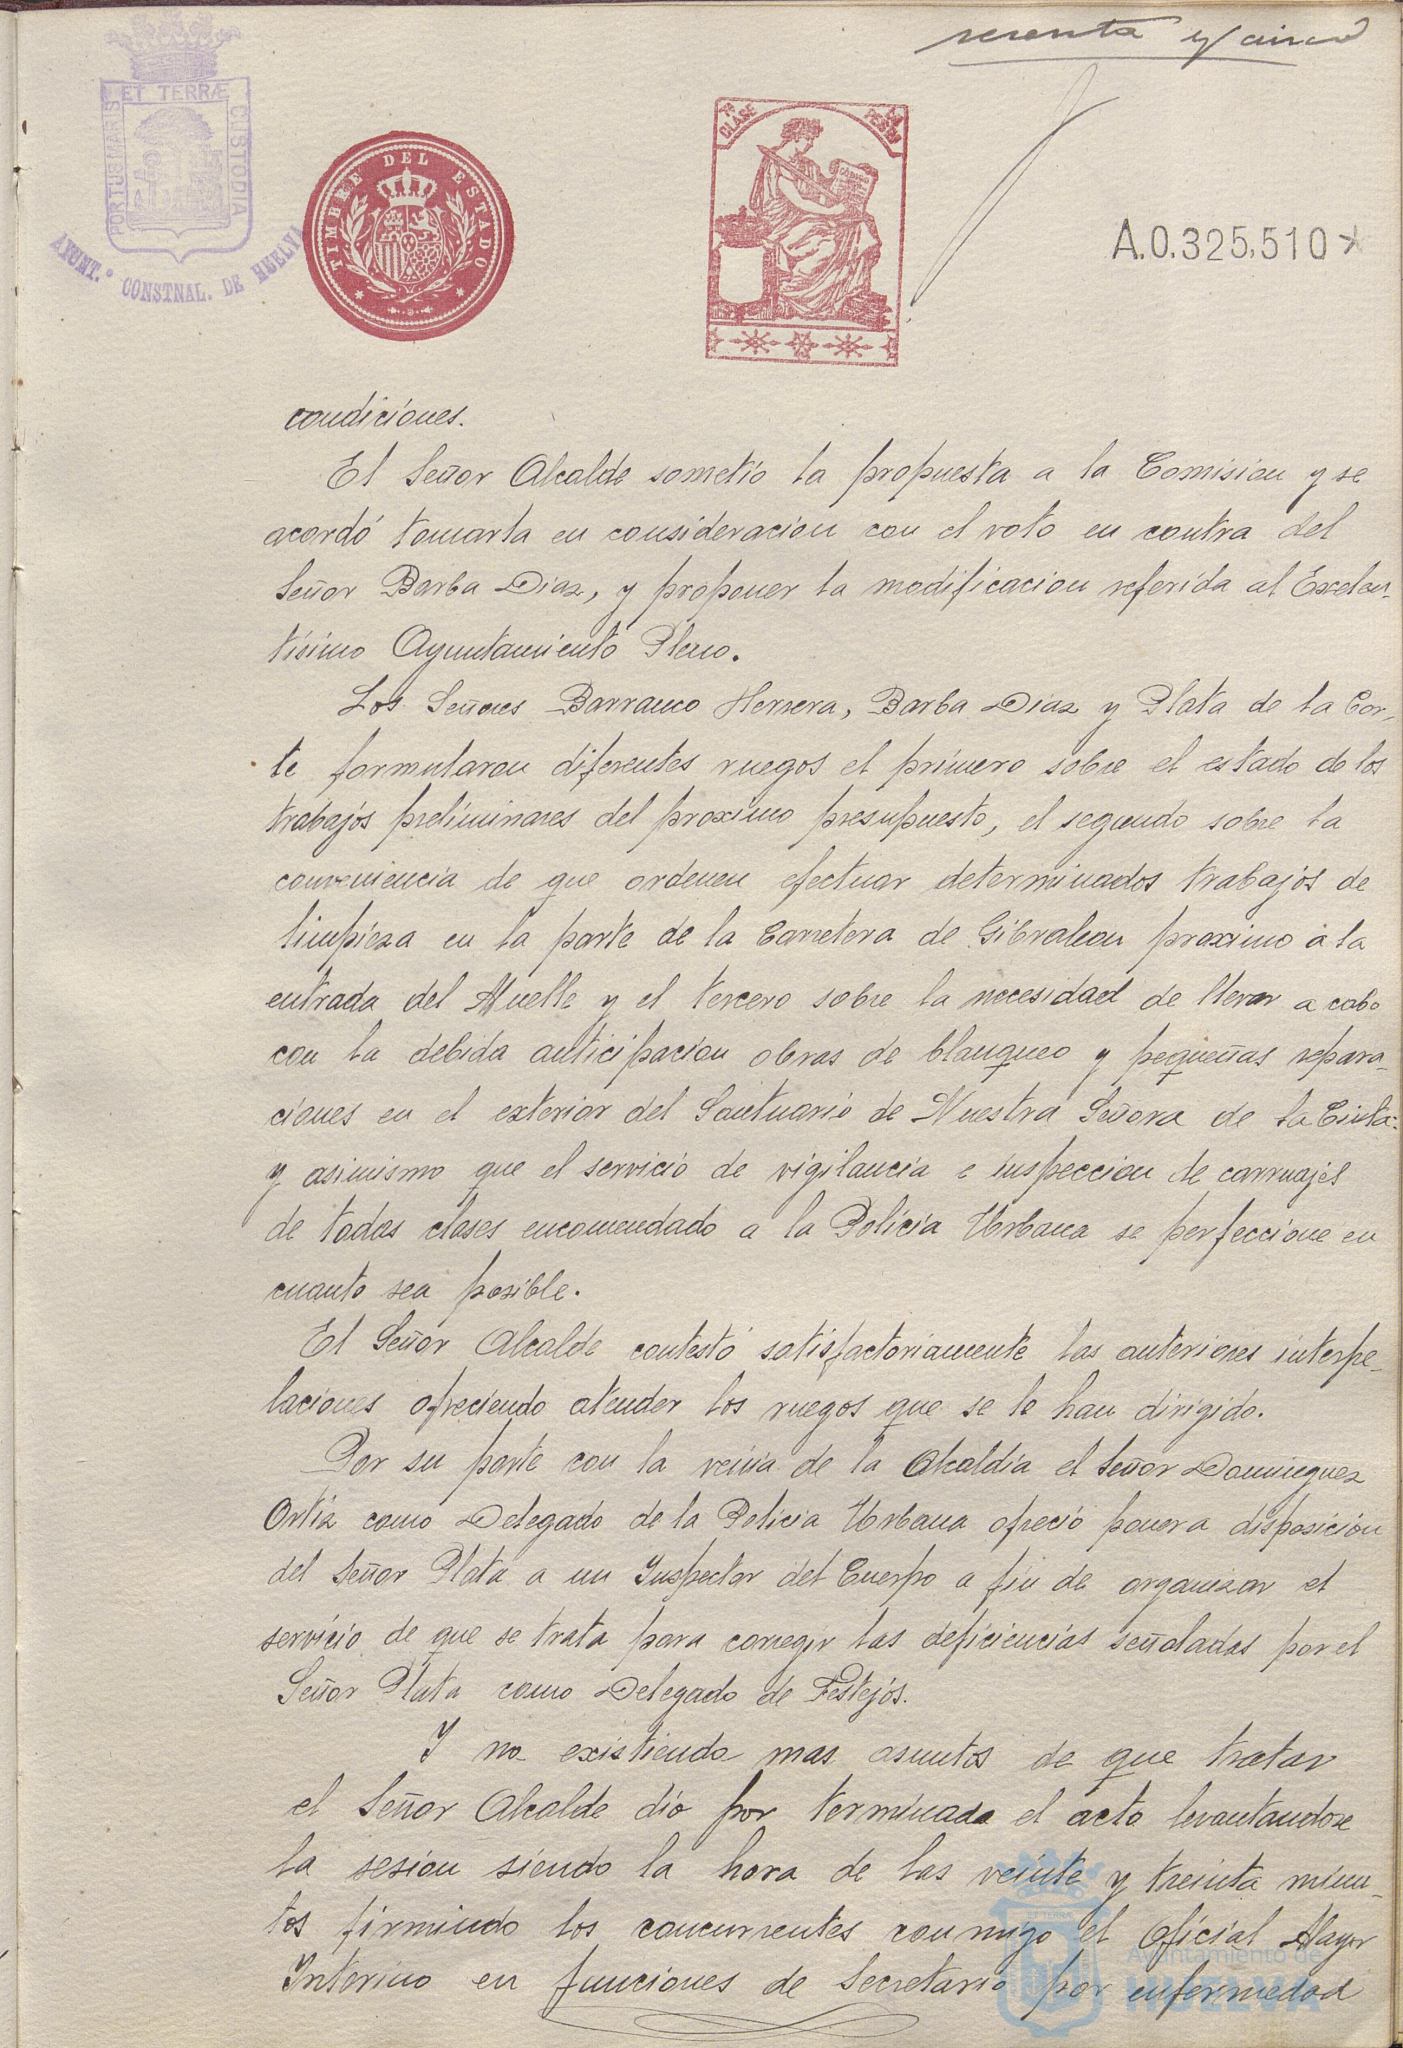 sesenta y cinco
PORTUS MARIS ET TERRÆ CUSTODIA
AYUNT.º CONSTNAL. DE HUELVA
TIMBRE DEL ESTADO
7ª CLASE
CÓDIGO
A.0.325,510*
condiciones.
El Señor Alcalde sometio la propuesta a la Comision y se
acordó tomarla en consideracion con el voto en contra del
Señor Barba Diaz, y proponer la modificacion referida al Excelen-
tisimo Ayuntamiento Pleno.
Los Señores Barranco Herrera, Barba Diaz y Plata de la Cor-
te formularon diferentes ruegos el primero sobre el estado de los
trabajos preliminares del proximo presupuesto, el segundo sobre la
conveniencia de que ordenen efectuar determinados trabajos de
limpieza en la parte de la Carretera de Gibraleon proximo a la
entrada del Muelle y el tercero sobre la necesidad de llevar a cabo
con la debida anticipacion obras de blanqueo y pequeñas repara-
ciones en el exterior del Santuario de Nuestra Señora de la Cinta:
y asimismo que el servicio de vigilancia e inspeccion de carruajes
de todas clases encomendado a la Policia Urbana se perfeccione en
cuanto sea posible.
El Señor Alcalde contestó satisfactoriamente las anteriores interpe-
laciones ofreciendo atender los ruegos que se le han dirigido.
Por su parte con la venia de la Alcaldia el Señor Dominguez
Ortiz como Delegado de la Policia Urbana ofreció poner a disposicion
del Señor Plata a un Inspector del Cuerpo a fin de organizar el
servicio de que se trata para corregir las deficiencias señaladas por el
Señor Plata como Delegado de Festejos.
Y no existiendo mas asuntos de que tratar
el Señor Alcalde dio por terminado el acto levantandose
la sesion siendo la hora de las veinte y treinta minu-
tos firmando los concurrentes conmigo el Oficial Mayor
Interino en funciones de Secretario por enfermedad
Ayuntamiento de
HUELVA